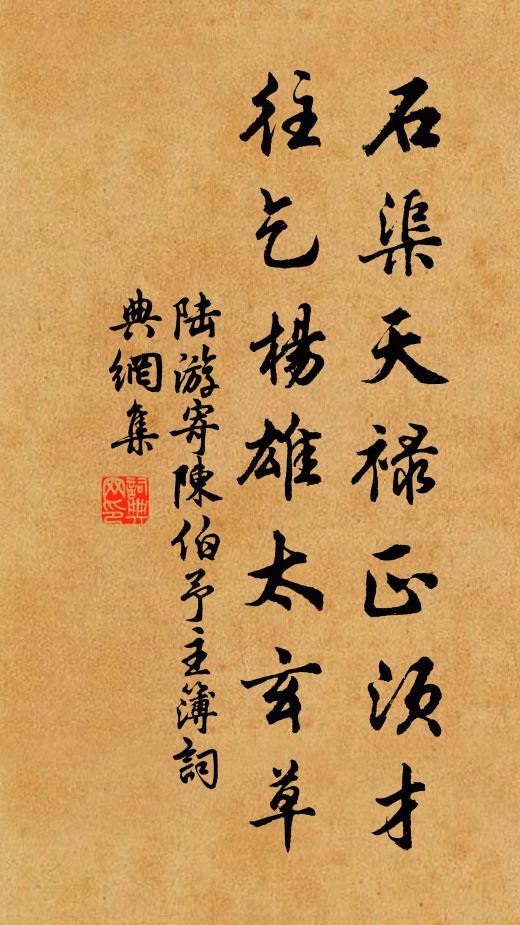 石渠天禄正須才
往乞楊雄太玄草
陸游寄陳伯予主簿詞
典網集
詞典
网印